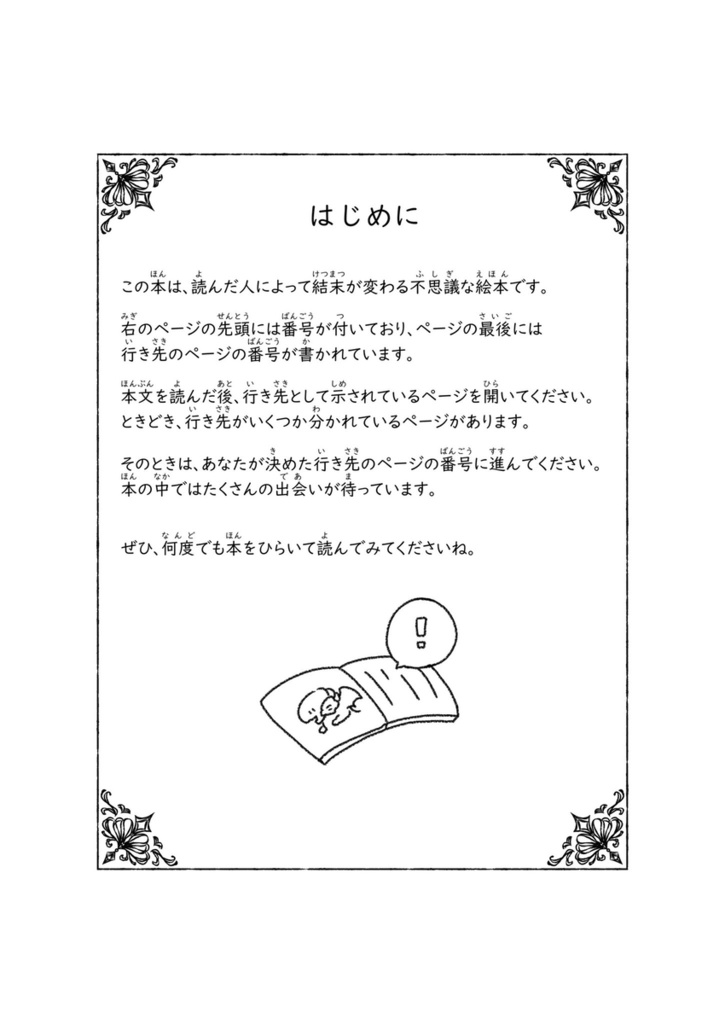 はじめに
この本は、読んだ人によって結末が変わる不思議な絵本です。
右のページの先頭には番号が付いており、ページの最後には
行き先のページの番号が書かれています。
本文を読んだ後、行き先として示されているページを開いてください。
ときどき、行き先がいくつか分かれているページがあります。
そのときは、あなたが決めた行き先のページの番号に進んでください。
本の中ではたくさんの出会いが待っています。
ぜひ、何度でも本をひらいて読んでみてくださいね。
!